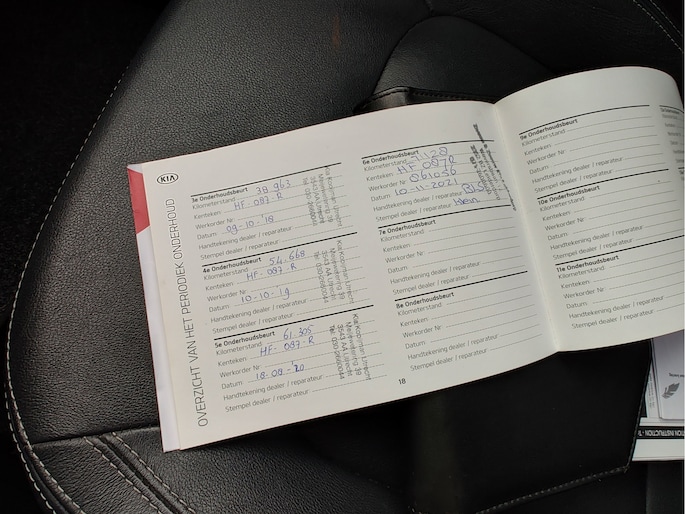 KIA
OVERZICHT VAN HET PERIODIEK ONDERHOUD
3e Onderhoudsbeurt
Kilometerstand 38 963
Kenteken: HF-097-R
Werkorder Nr
Datum 09-10-18
Handtekening dealer / reparateur
Stempel dealer / reparateur
Kia Kooijman Utrecht
3543 AA Utrecht
4e Onderhoudsbeurt
Kilometerstand 54.668
Kenteken: HF-097-R
Werkorder Nr
Datum 10-10-19
Handtekening dealer / reparateur
Stempel dealer / reparateur
Kia Kooijman Utrecht
3543 AA Utrecht
5e Onderhoudsbeurt
Kilometerstand 61.305
Kenteken: HF-097-R
Werkorder Nr
Datum 18-08-20
Handtekening dealer / reparateur
Stempel dealer / reparateur
Kia Kooijman Utrecht
3543 AA Utrecht
6e Onderhoudsbeurt
Kilometerstand
Kenteken: HF 097R
Werkorder Nr 061056
Datum 10-11-2021
Handtekening dealer / reparateur
Stempel dealer / reparateur
7e Onderhoudsbeurt
Kilometerstand
Kenteken:
Werkorder Nr
Datum
Handtekening dealer / reparateur
Stempel dealer / reparateur
8e Onderhoudsbeurt
Kilometerstand
Kenteken:
Werkorder Nr
Datum
Handtekening dealer / reparateur
Stempel dealer / reparateur
18
9e Onderhoudsbeurt
Kilometerstand
Kenteken:
Werkorder Nr
Datum
Handtekening dealer / reparateur
Stempel dealer / reparateur
10e Onderhoudsbeurt
Kilometerstand
Kenteken:
Werkorder Nr
Datum
Handtekening dealer / reparateur
Stempel dealer / reparateur
11e Onderhoudsbeurt
Kilometerstand
Kenteken:
Werkorder Nr
Datum
Handtekening dealer / reparateur
Stempel dealer / reparateur